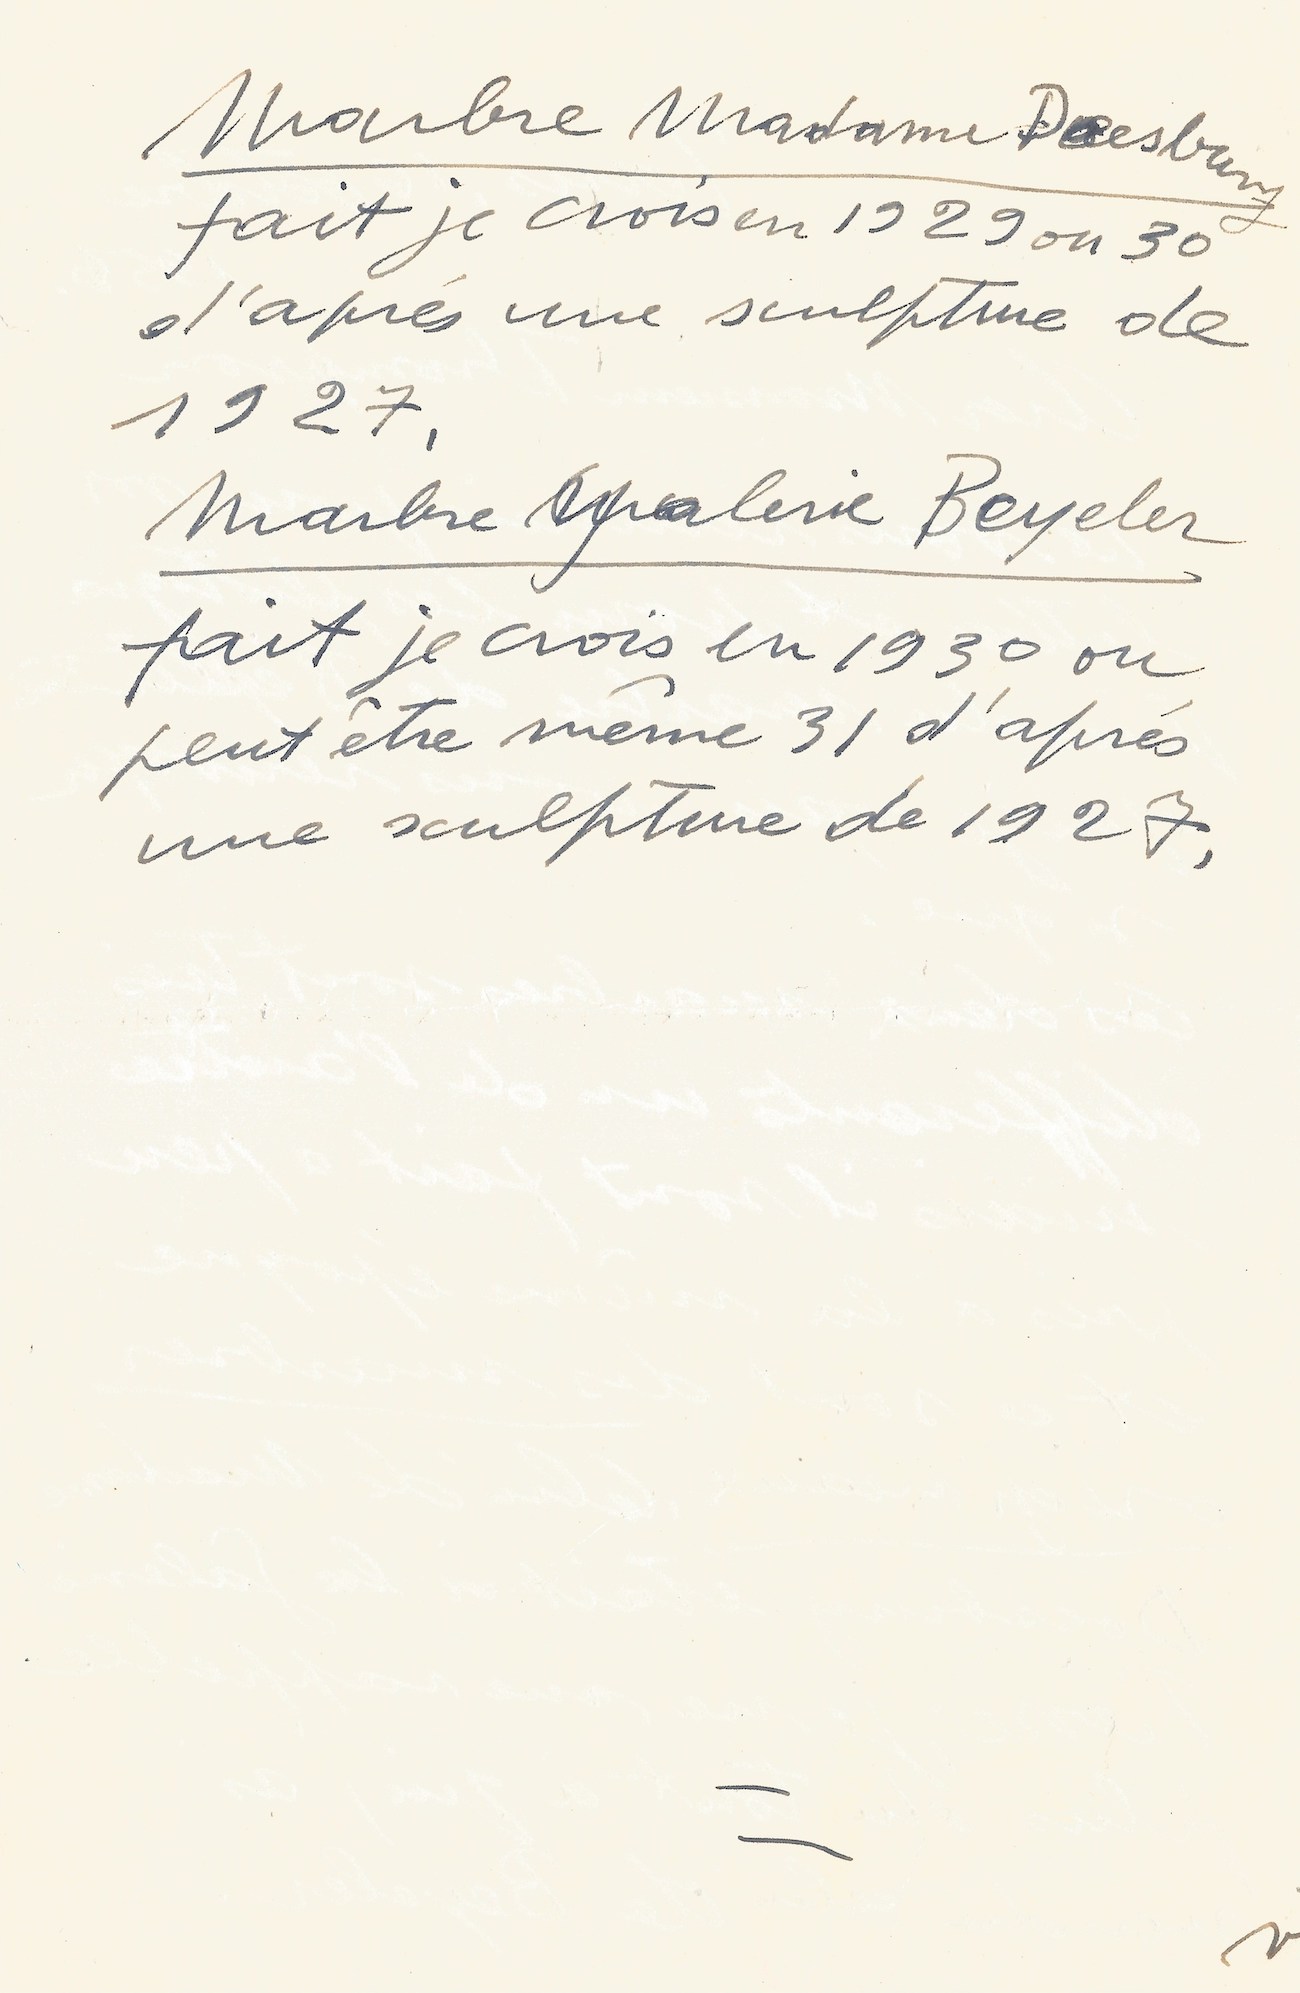 Marbre Madame Doesburg
fait je crois en 1929 ou 30
d'après une sculpture de
1927.
Marbre galerie Beyeler
fait je crois en 1930 ou
peut être même 31 d'après
une sculpture de 1927.